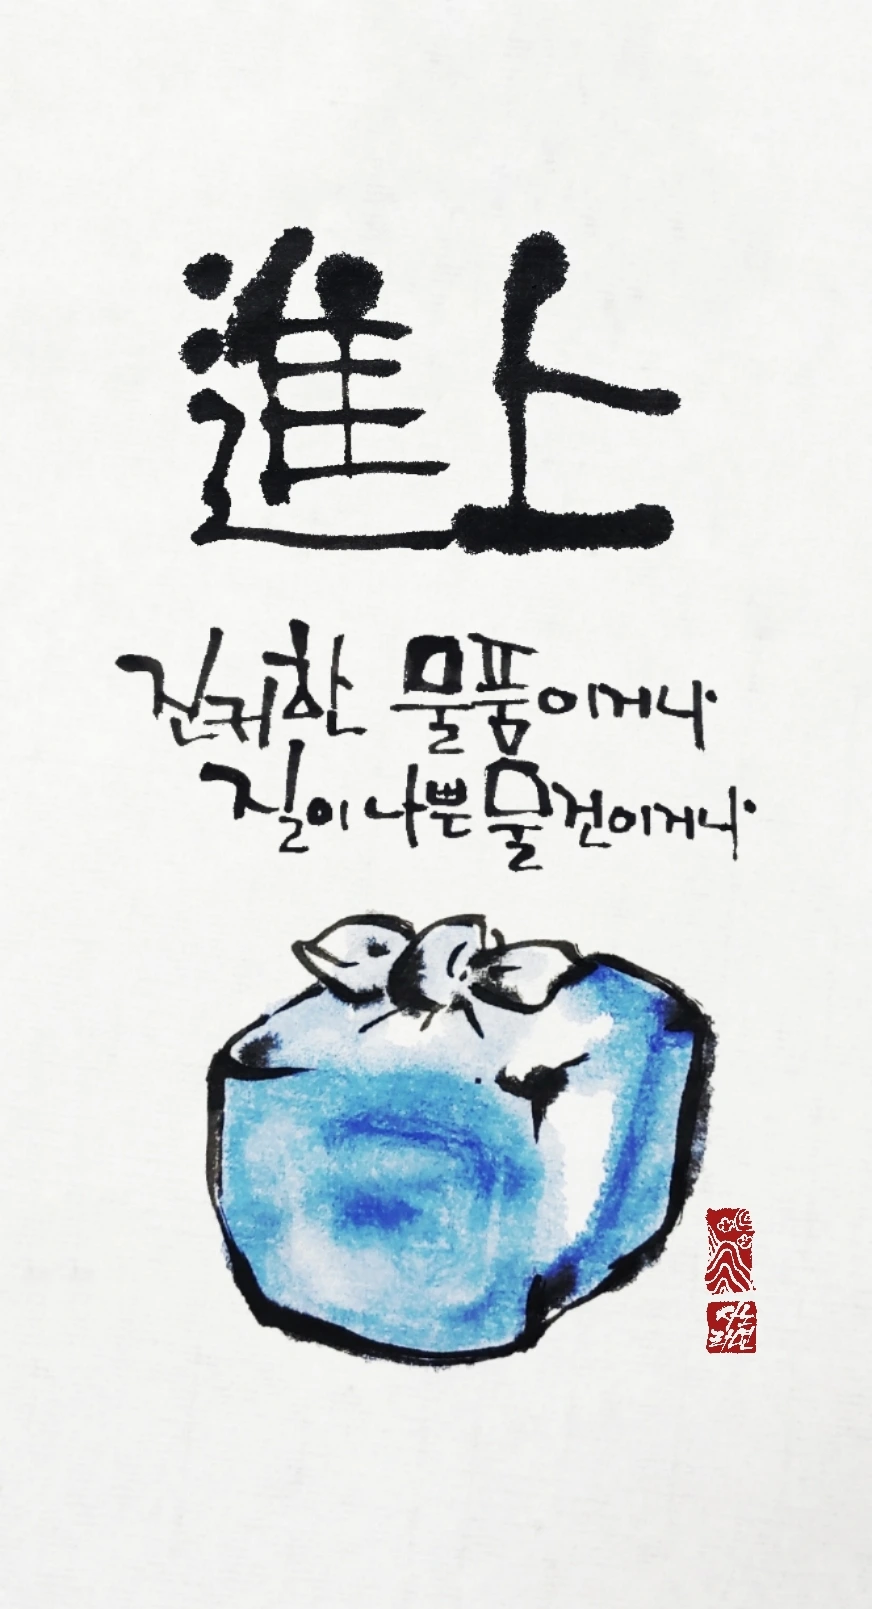 進上
진귀한 물품이거나
질이 나쁜 물건이거나